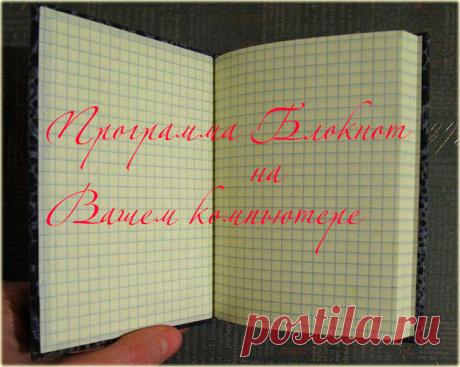 Программа Блокнот
на
Вашем компьютере
postila.ru